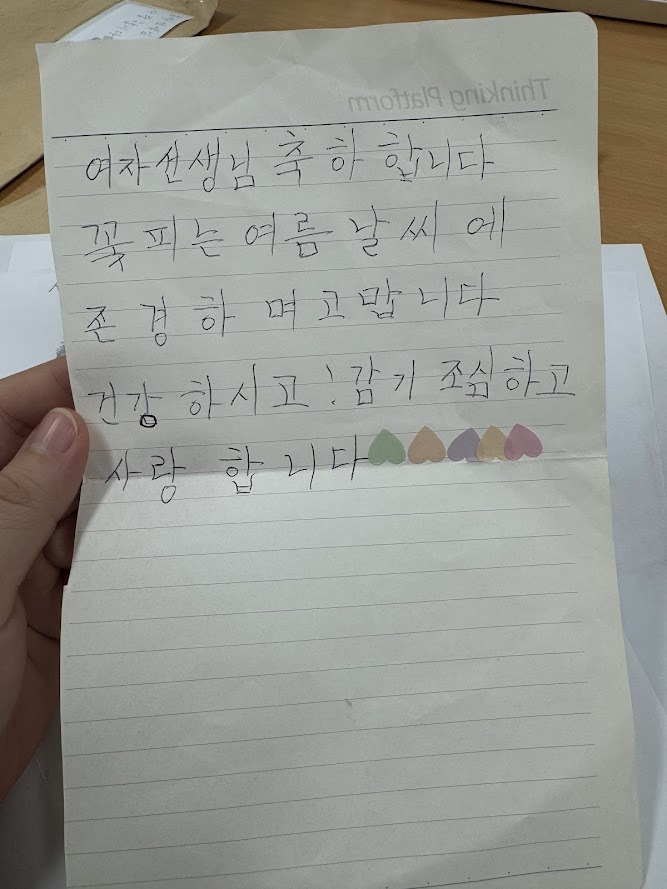 Thinking Platform
여자선생님 축하 합니다
꽃피는 여름 날씨 에
존경하 며 고맙 니다
건강 하시고 ! 감기 조심하고
사랑 합 니다